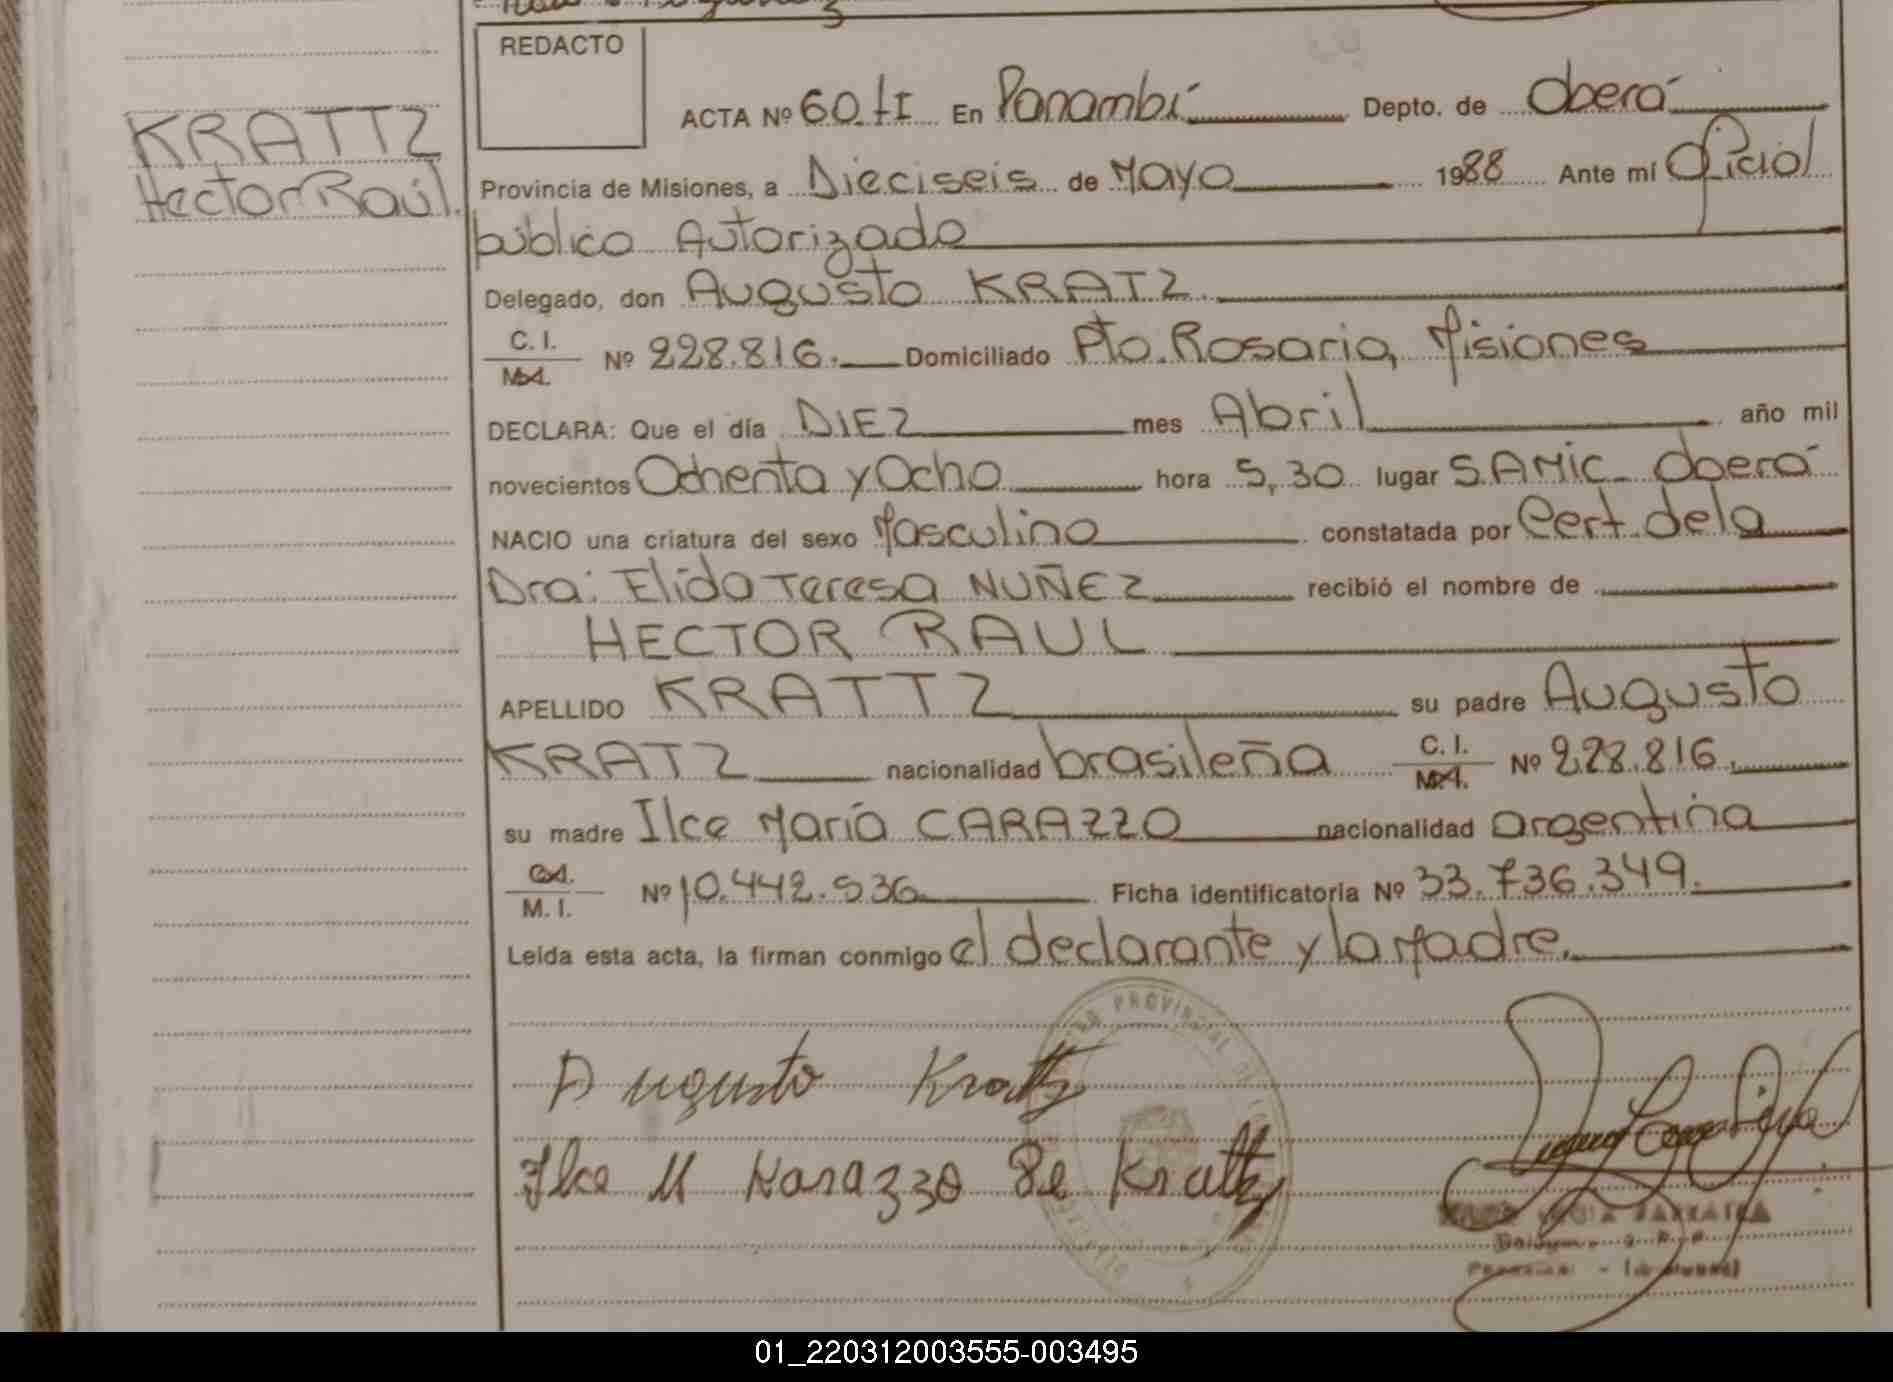 REDACTO
KRATTZ
Hector Raúl.
ACTA Nº 60.tI En Panambí Depto. de Oberá
Provincia de Misiones, a Dieciseis de Mayo 1988 Ante mí Oficial
público Autorizado
Delegado, don Augusto KRATZ.
C. I.
M.I. Nº 228.816. Domiciliado Pto. Rosario, Misiones
DECLARA: Que el día DIEZ mes Abril año mil
novecientos Ochenta y Ocho hora 5,30 lugar S.AMIC_ Oberá
NACIO una criatura del sexo Masculino constatada por Cert. de la
Dra: Elida Teresa NUÑEZ recibió el nombre de
HECTOR RAUL
APELLIDO KRATTZ su padre Augusto
KRATZ nacionalidad brasileña C. I.
M.I. Nº 228.816.
su madre Ilce María CARAZZO nacionalidad argentina
C.I.
M. I. Nº 10.442.536 Ficha identificatoria Nº 33.736.349.
Leída esta acta, la firman conmigo el declarante y la Madre.
PROVINCIAL DE
Augusto Krattz
Ilce M Karazzo De Krattz
01_220312003555-003495